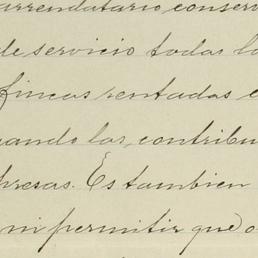 arrendatario conserv
de servicio todas la
fincas rentadas e
uando los contribu
presas. Es tambien
ni permitir que o